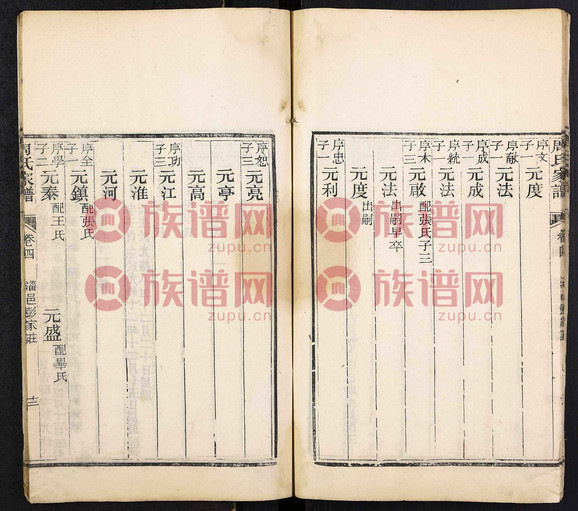 周氏家譜
卷四
序文子一 元度
序蘇子一 元法
序成子一 元成
序統子一 元法
序木子三 元敢 配張氏子三
元法 出嗣早卒
元度 出嗣
序忠子一 元利
序恕子三 元亮
元亭
元高
序功子三 元江
元淮
元河
序全子一 元鎮 配張氏
序學子二 元秦 配王氏 元盛 配畢氏
周氏家譜 卷四 淄邑彭家莊 十二
族谱网
zupu.cn
族谱网
zupu.cn
族谱网
zupu.cn
族谱网
zupu.cn